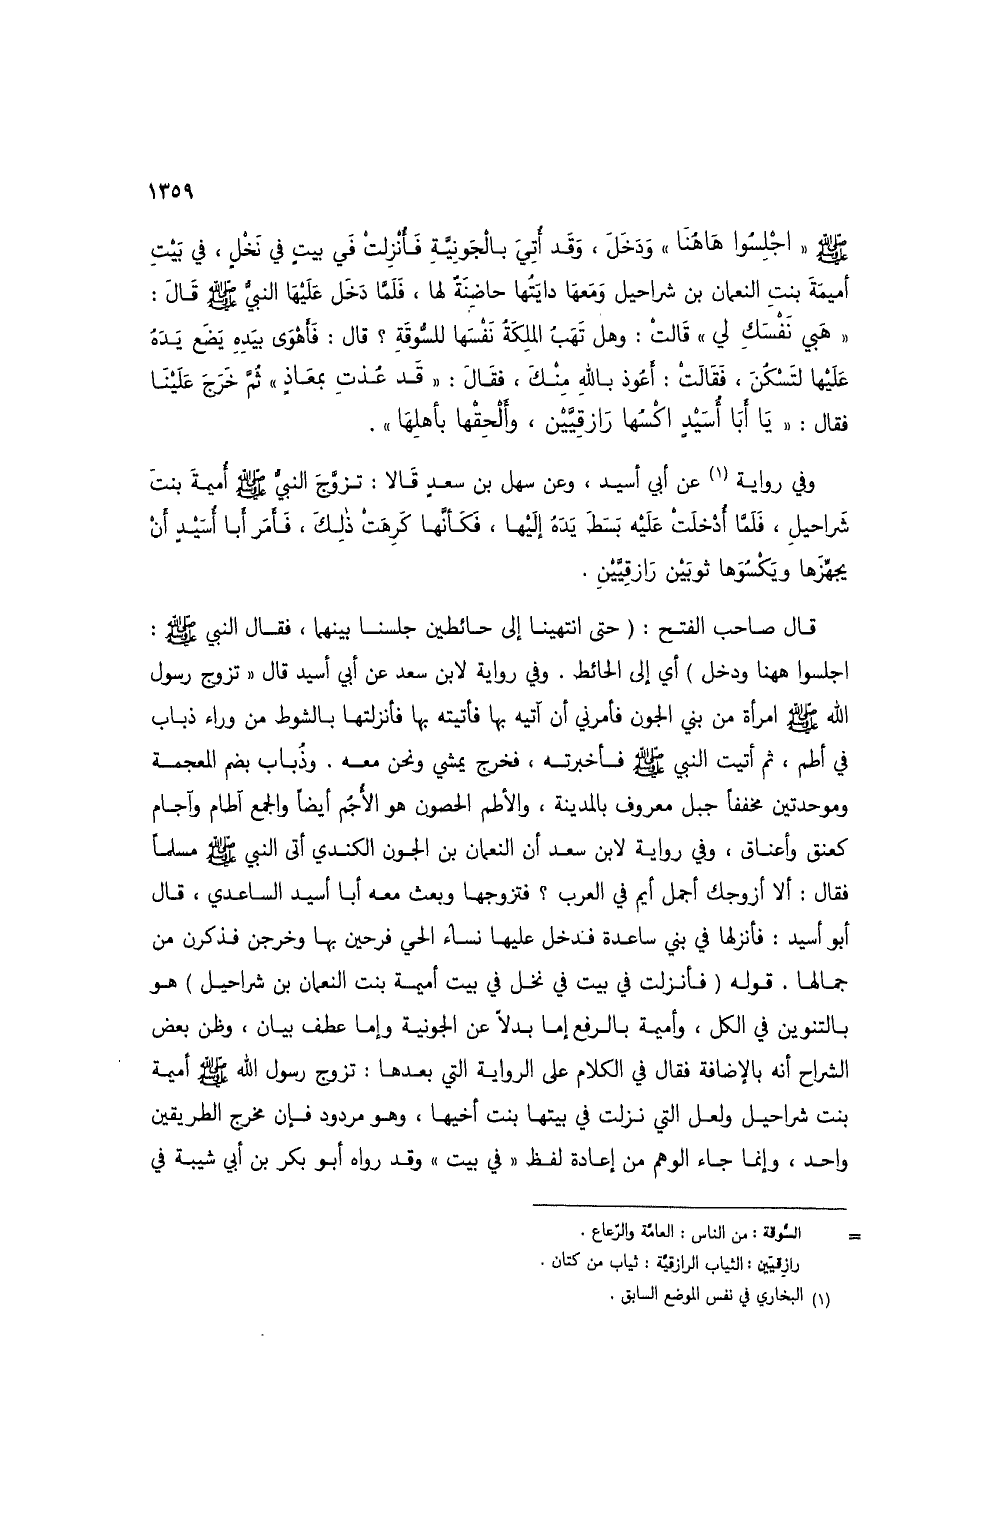 ١٣٥٩
ﷺ « اجْلِسُوا هَاهُنَا » وَدَخَلَ ، وَقَد أُتِيَ بـالْجَونِيَّةِ فَـأُنْزِلتْ فَي بيتٍ في نَخْلٍ ، في بَيْتِ
أميمَةَ بنتِ النعمان بن شراحيل وَمَعهَا دايَتُها حاضِنَةٌ لها ، فَلَمَّا دَخَل عَلَيْهَا النبيُّ ﷺ قَـالَ :
« هَبي نَفْسَكِ لي » قَالَتْ : وهل تَهَبُ الملِكَةُ نَفْسَها للسُّوقَةِ ؟ قال : فَأَهْوَى بيَدِهِ يَضَع يَـدَهُ
عَلَيْها لتَسْكُنَ ، فَقَالَتْ : أَعُوذ بـاللهِ مِنْـكَ ، فقَـالَ : « قَـد عُـذتِ بمعَـاذٍ » ثُمَّ خَرَجَ عَلَيْنَـا
فقال : « يَا أَبَا أُسَيْدٍ اكْسُها رَازقِيَّيْن ، وأَلْحِقْها بأهلِهَا » .
وفي روايـة (١) عن أبي أسيـد ، وعن سهل بن سعـدٍ قَـالا : تـزوَّجَ النبيُّ ﷺ أُميمـةَ بنتَ
شَراحيلٍ ، فَلَمَّا أُدْخلَتْ عَلَيْه بَسَطَ يَدَهُ إلَيْهـا ، فَكَـأنَّهـا كَرِهَتْ ذٰلِـكَ ، فَـأَمَر أَبـا أُسَيْـدٍ أَنْ
يجهِّزَها ويَكْسُوَها ثوبَيْن رَازقِيَّيْنِ .
قـال صـاحب الفتـح : ( حتى انتهينـا إلى حـائطين جلسنـا بينهما ، فقـال النبي ﷺ :
اجلسوا ههنا ودخل ) أي إلى الحائط . وفي رواية لابن سعد عن أبي أسيد قال « تزوج رسول
الله ﷺ امرأة من بني الجون فأمرني أن آتيه بها فأتيته بها فأنزلتهـا بـالشوط من وراء ذبـاب
في أطم ، ثم أتيت النبي ﷺ فـأخبرتـه ، فخرج يمشي ونحن معـه . وذُبـاب بضم المعجمـة
وموحدتين مخففاً جبل معروف بالمدينة ، والأطم الحصون هو الأُجُم أيضاً والجمع آطام وآجـام
كعنق وأعنـاق ، وفي روايـة لابن سعد أن النعمان بن الجـون الكنـدي أتى النبي ﷺ مسلمـاً
فقال : ألا أزوجك أجمل أيم في العرب ؟ فتزوجهـا وبعث معـه أبـا أسيـد السـاعـدي ، قـال
أبو أسيد : فأنزلها في بني ساعدة فـدخل عليهـا نسـاء الحي فرحين بهـا وخرجن فـذكرن من
جمـالهـا . قولـه ( فـأنـزلت في بيت في نخـل في بيت أميمـة بنت النعمان بن شراحيـل ) هـو
بـالتنوين في الكل ، وأميمة بـالـرفع إمـا بـدلاً عن الجونيـة وإمـا عطف بيـان ، وظن بعض
الشراح أنه بالإضافة فقال في الكلام على الروايـة التي بعـدهـا : تزوج رسول الله ﷺ أميمة
بنت شراحيـل ولعـل التي نـزلت في بيتهـا بنت أخيهـا ، وهـو مردود فـإن مخرج الطريقين
واحـد ، وإنمـا جـاء الوهم من إعادة لفـظ « في بيت » وقـد رواه أبـو بكر بن أبي شيبـة في
= السُّوقة : من الناس : العامّة والرّعاع .
رازقيّين : الثياب الرازقيّة : ثياب من كتان .
(١) البخاري في نفس الموضع السابق .